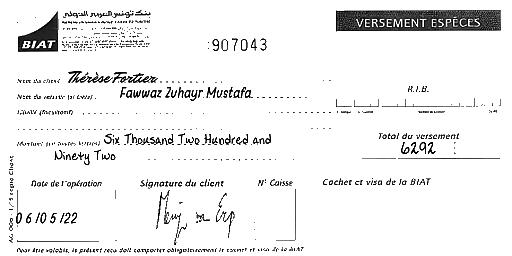 بنك تونس العربي الدولي
BIAT
907043
VERSEMENT ESPÈCES
Nom du client Thérèse Fortier
Nom du remettant (si tiers) Fawwaz Zuhayr Mustafa
R.I.B.
Libellé (facultatif)
Montant (en toutes lettres) Six Thousand Two Hundred and
Ninety Two
Total du versement
6292
Date de l'opération Signature du client N° Caisse Cachet et visa de la BIAT
06/05/22
Pour être valable, le présent reçu doit comporter obligatoirement le cachet et visa de la BIAT